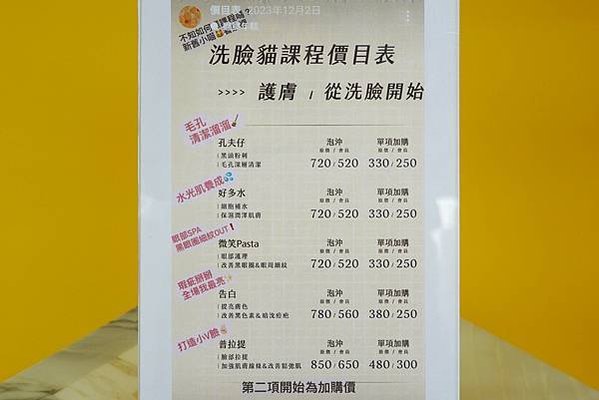 價目表 2023年12月2日
不知如何
新舊小喵
洗臉貓課程價目表
>>>> 護膚 / 從洗臉開始
毛孔
清潔溜溜
孔夫仔 泡沖 單項加購
原價 / 會員 原價 / 會員
黑頭粉刺
毛孔深層清潔 720/520 330/250
水光肌養成
好多水 泡沖 單項加購
原價 / 會員 原價 / 會員
細胞補水
保濕潤澤肌膚 720/520 330/250
眼部SPA
黑眼圈細紋OUT!
微笑Pasta 泡沖 單項加購
原價 / 會員 原價 / 會員
眼部護理
改善黑眼圈&眼周細紋 720/520 330/250
瑕疵掰掰
全場我最亮
告白 泡沖 單項加購
原價 / 會員 原價 / 會員
提亮膚色
改善黑色素&暗沈痘疤 780/560 380/250
打造小V臉
普拉提 泡沖 單項加購
原價 / 會員 原價 / 會員
臉部拉提
加強肌膚線條&改善鬆弛肌 850/650 480/300
第二項開始為加購價